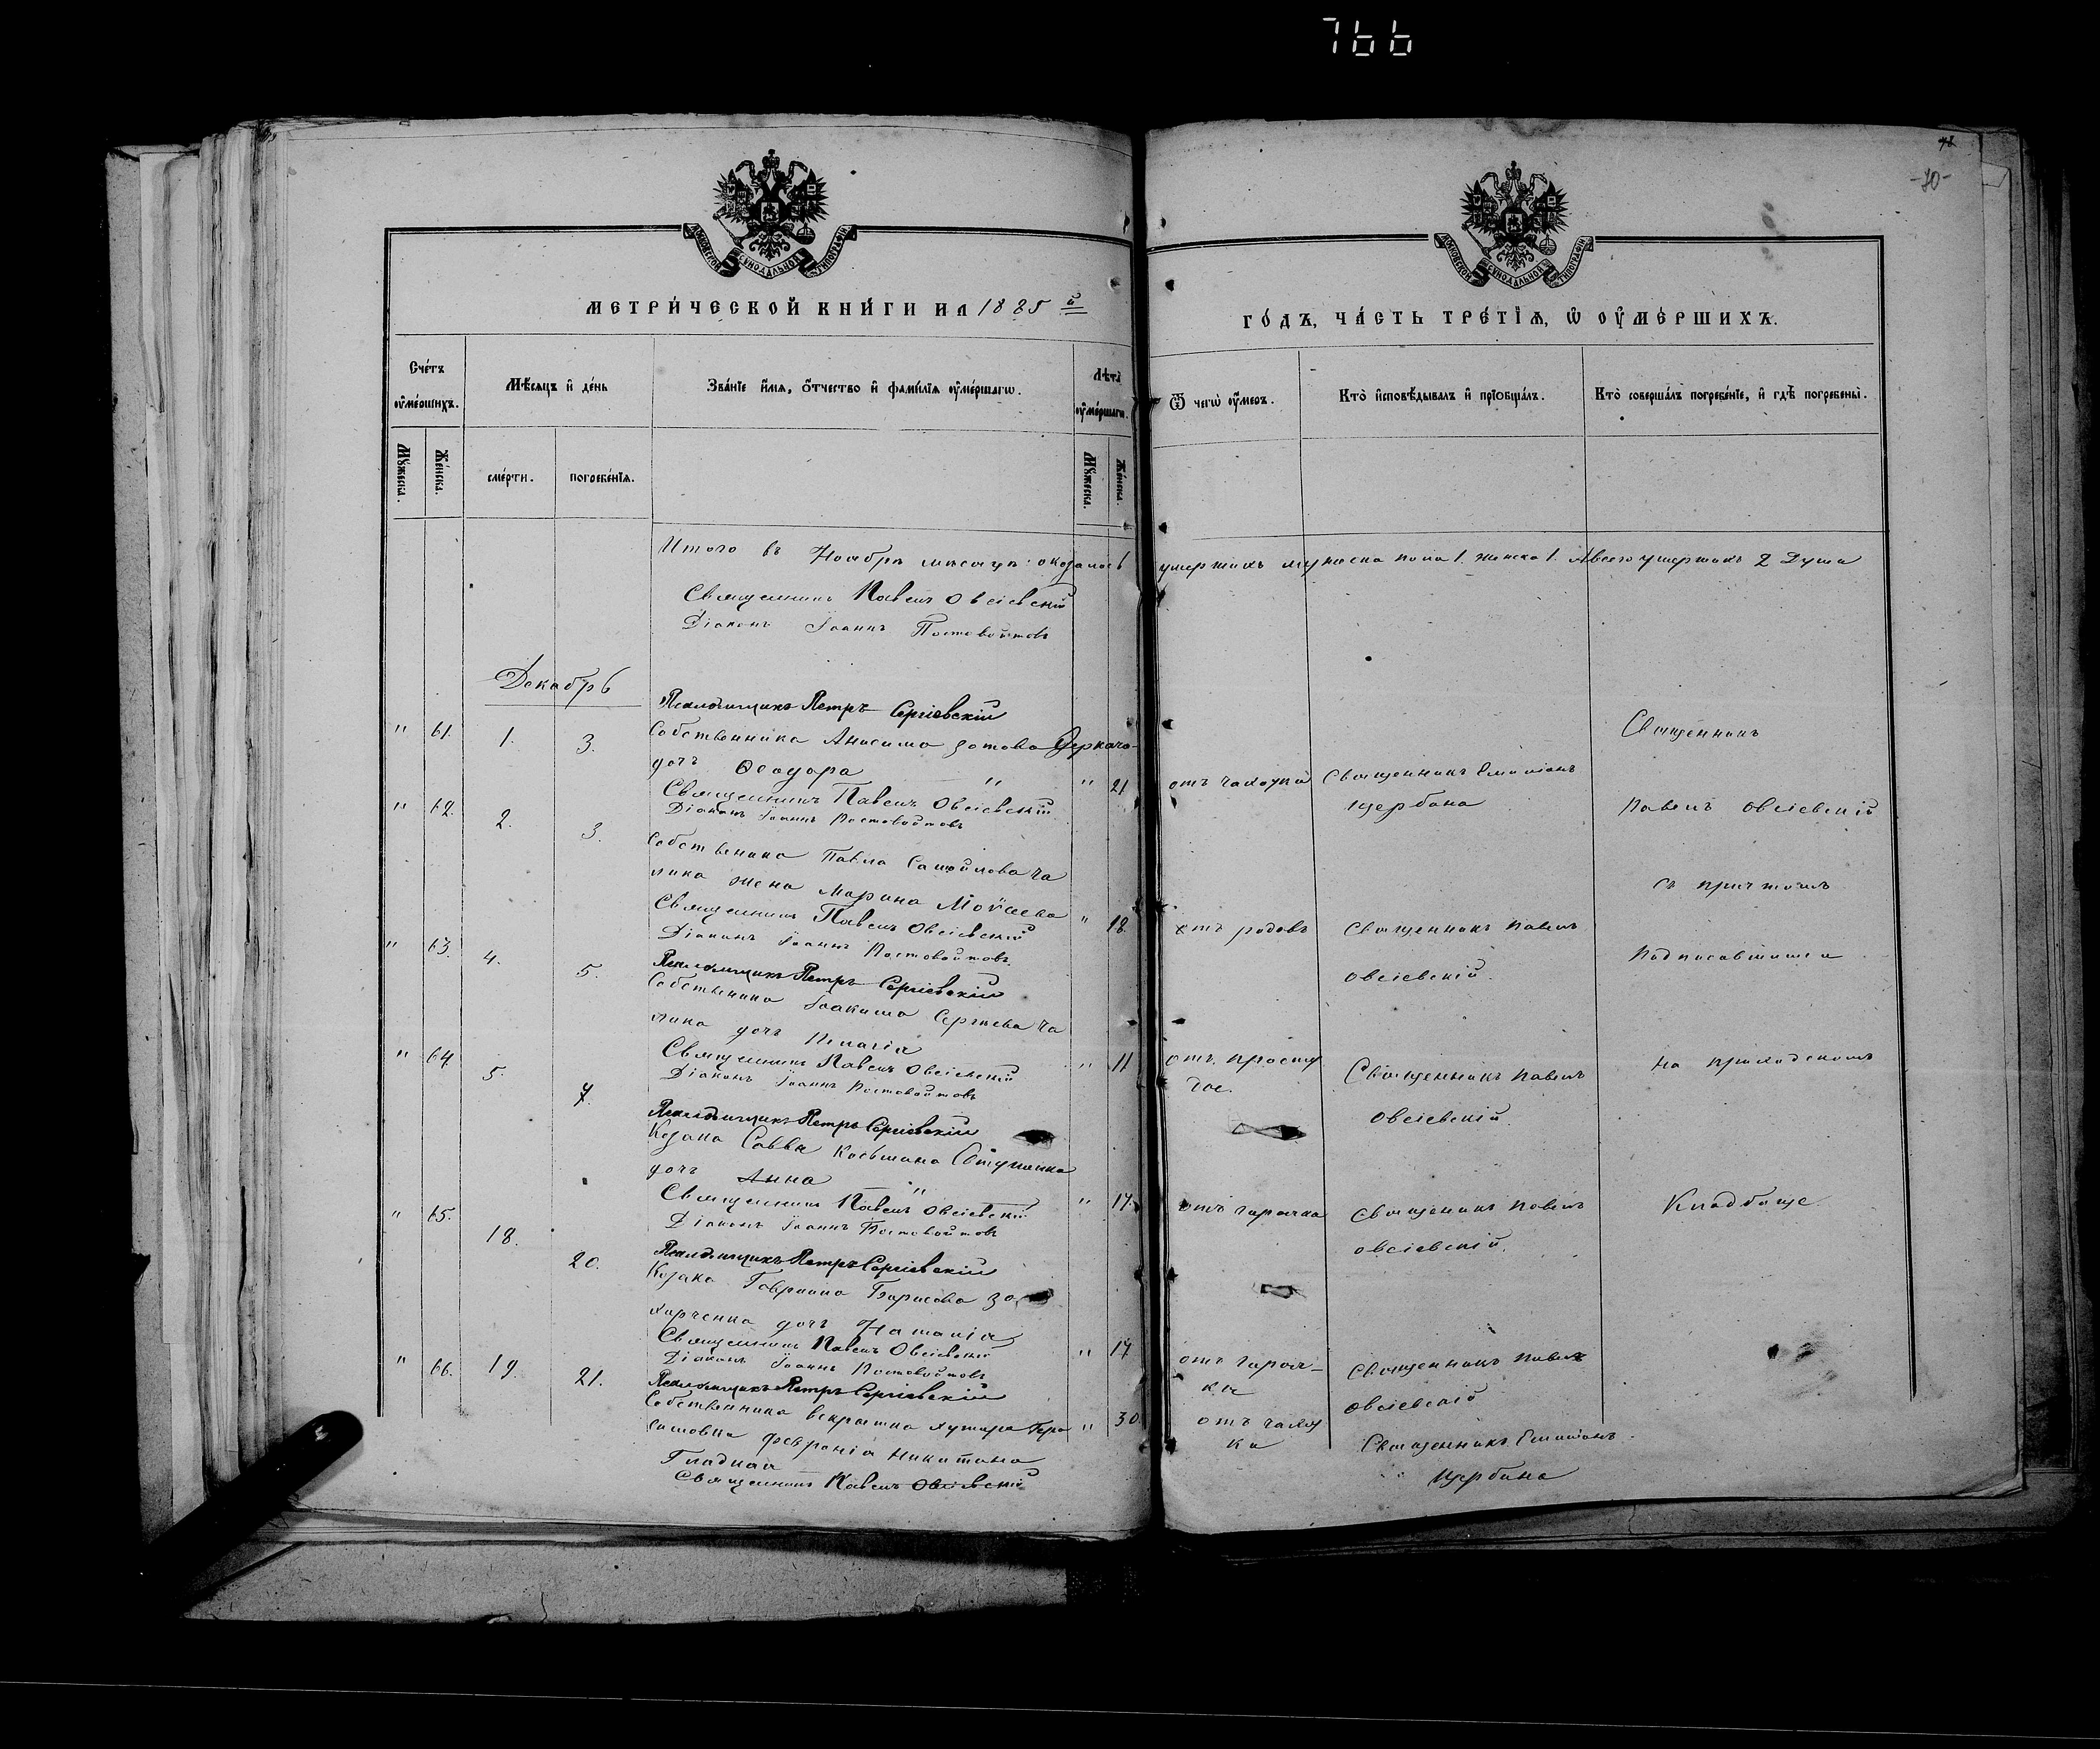 766
70
МЕТРИЧЕСКОЙ КНИГИ НА 1885 й
ГОДЪ, ЧАСТЬ ТРЕТІЯ, Ѡ ОУМЕРШИХЪ.
МОСКОВСКОЙ СѴНОДАЛЬНОЙ ТИПОГРАФІИ
МОСКОВСКОЙ СѴНОДАЛЬНОЙ ТИПОГРАФІИ
Счетъ оумершихъ.
Мѣсяцъ и день
Званіе имя, отчество и фамилія оумершагѡ.
Лѣта оумершагѡ.
Ѿ чегѡ оумеръ.
Кто исповѣдывалъ и пріобщалъ.
Кто совершалъ погребеніе, и гдѣ погребены.
Мужеска.
Женска.
смерти.
погребенія.
Мужеска.
Женска.
Итого въ Ноябрѣ мѣсяцѣ оказалось умершихъ мужеска пола 1. женска 1. А всего умершихъ 2 Души
Священникъ Павелъ Овсіевскій
Діаконъ Іоаннъ Постовойтовъ
Декабрь
Псаломщикъ Петръ Сергіевскій
" 61. 1. 3.
Собственника Анисима Зотова Деркача
дочь Ѳеодора " " 21 отъ чахотки Священникъ Емиліанъ
Щербина
Священникъ
Павелъ Овсіевскій
съ причтомъ
Подписавшимся
на приходскомъ
Кладбище
Священникъ Павелъ Овсіевскій
Діаконъ Іоаннъ Постовойтовъ
" 62. 2. 3.
Собственика Павла Самойлова Ча
лика жена Марина Моисеева " 18 отъ родовъ Священникъ Павелъ
Овсіевскій.
Священникъ Павелъ Овсіевскій
Діаконъ Іоаннъ Постовойтовъ
Псаломщикъ Петръ Сергіевскій
" 63. 4. 5.
Собственика Іоакима Сергѣева Ча
лика дочь Пелагія " 11 отъ просту
ды. Священникъ Павелъ
Овсіевскій.
Священникъ Павелъ Овсіевскій
Діаконъ Іоаннъ Постовойтовъ
Псаломщикъ Петръ Сергіевскій
" 64. 5. 7.
Козака Саввы Косьмина
дочь Анна " " 17. отъ горячки Священникъ Павелъ
Овсіевскій.
Священникъ Павелъ Овсіевскій
Діаконъ Іоаннъ Постовойтовъ
Псаломщикъ Петръ Сергіевскій
" 65. 18. 20.
Козака Гавріила Борисова За
харченка дочь Наталія " 17 отъ горяч-
ки Священникъ Павелъ
Овсіевскій
Священникъ Павелъ Овсіевскій
Діаконъ Іоаннъ Постовойтовъ
Псаломщикъ Петръ Сергіевскій
" 66. 19. 21.
Собственника хутора " 30. отъ чахот
ки Священникъ Емиліанъ
Щербина
Февронія Никитина
Гладкая
Священникъ Павелъ Овсіевскій